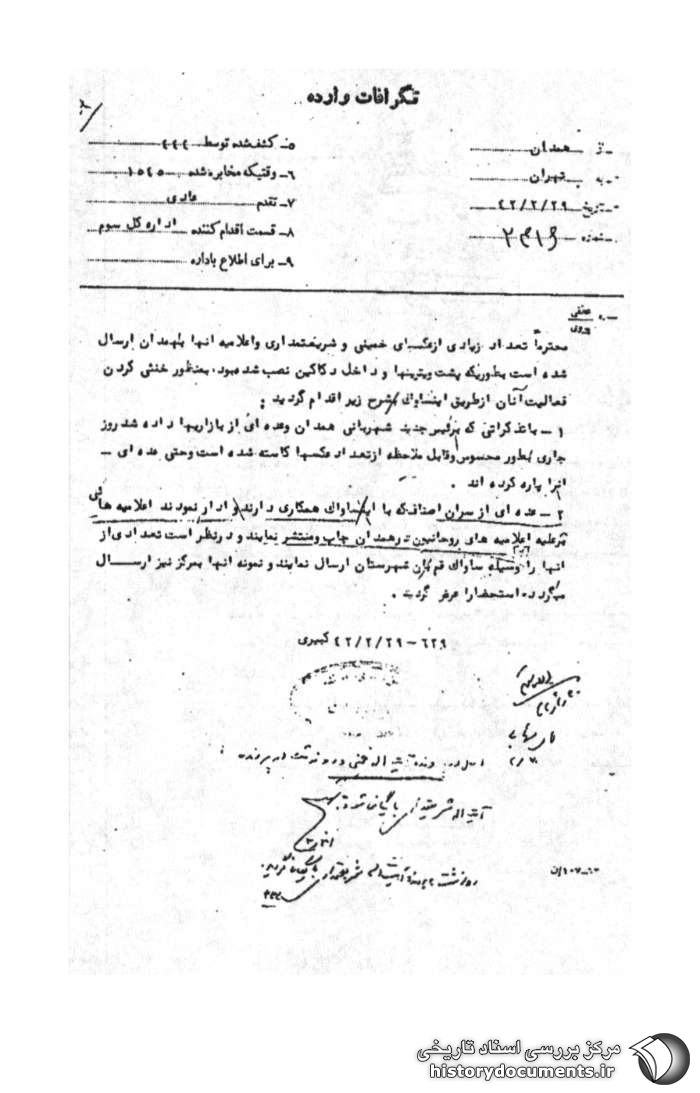 تلگرافات وارده
از همدان
به تهران
تاریخ ۴۲/۲/۲۹
شماره
۵ـ کشف شده توسط ۴۴۴
۶ـ وقتیکه مخابره شده ۱۵۴۵
۷ـ تقدم عادی
۸ـ قسمت اقدام کننده اداره کل سوم
۹ـ برای اطلاع باداره
محترماً تعداد زیادی ازعکسهای خمینی و شریعتمداری واعلامیه آنها بهمدان ارسال
شده است بطوریکه پشت ویترینها و داخل دکاکین نصب شده بود، بمنظور خنثی کردن
فعالیت آنان ازطریق اینساواک بشرح زیر اقدام گردید :
۱ ـ باتذکراتی که برئیس جدید شهربانی همدان وعده ای از بازاریها داده شد روز
جاری بطور محسوس وقابل ملاحظه ازتعداد عکسها کاسته شده است وحتی عده ای ـ
آنرا پاره کرده اند .
۲ ـ عده ای از سران اصناف که با اینساواک همکاری دارند وادار نمودند اعلامیه هائی
برعلیه اعلامیه های روحانیون درهمدان چاپ ومنتشر نمایند و درنظر است تعدادی از
آنها را وسیله ساواک قم بآن شهرستان ارسال نمایند و نمونه آنها بمرکز نیز ارســـال
میگردد، استحضارا عرض گردید .
۶۲۹ ـ ۴۲/۲/۲۹ کبیری
آیت اله شریعتمداری بایگانی شود
مرکز بررسی اسناد تاریخی
historydocuments.ir